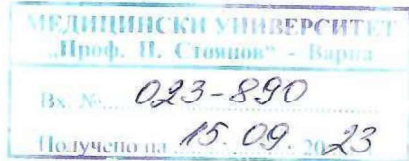 МЕДИЦИНСКИ УНИВЕРСИТЕТ
„Проф. П. Стоянов“ - Варна
Вх. №..... 023-890
Получено на 15.09.2023